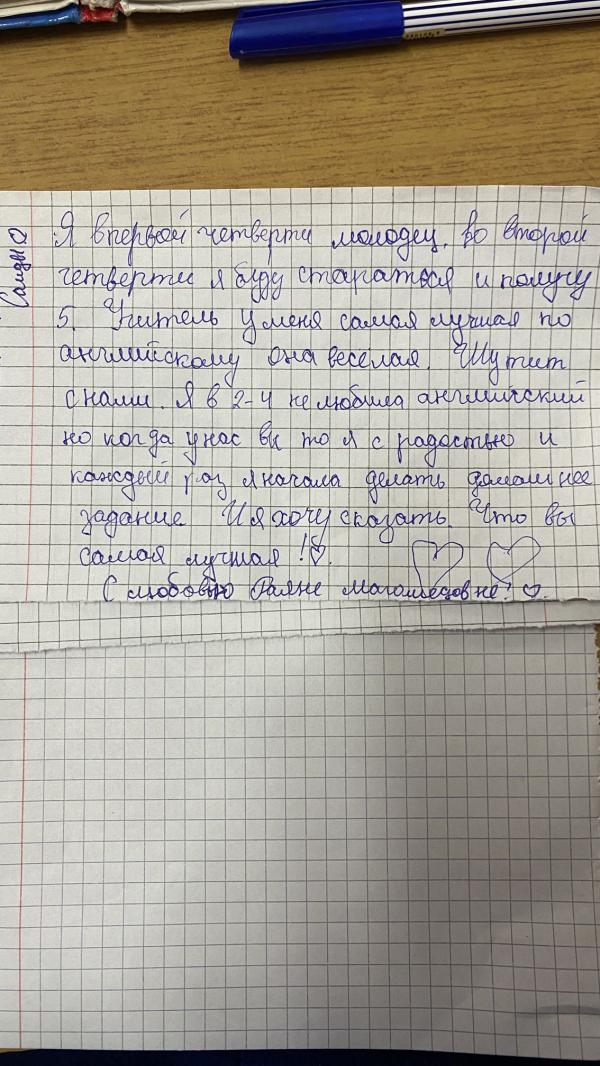 Я впервой четверти молодец. Во второй
четверти я буду стараться и получу
5. Учитель у меня самая лучшая по
английскому она веселая. Шутит
с нами. Я в 2-4 не любила английский
но когда у нас вы то я с радостью и
каждый раз я начала делать домашнее
задание И я хочу сказать. Что вы
самая лучшая!♡.
С любовью Магомедовне!♡.